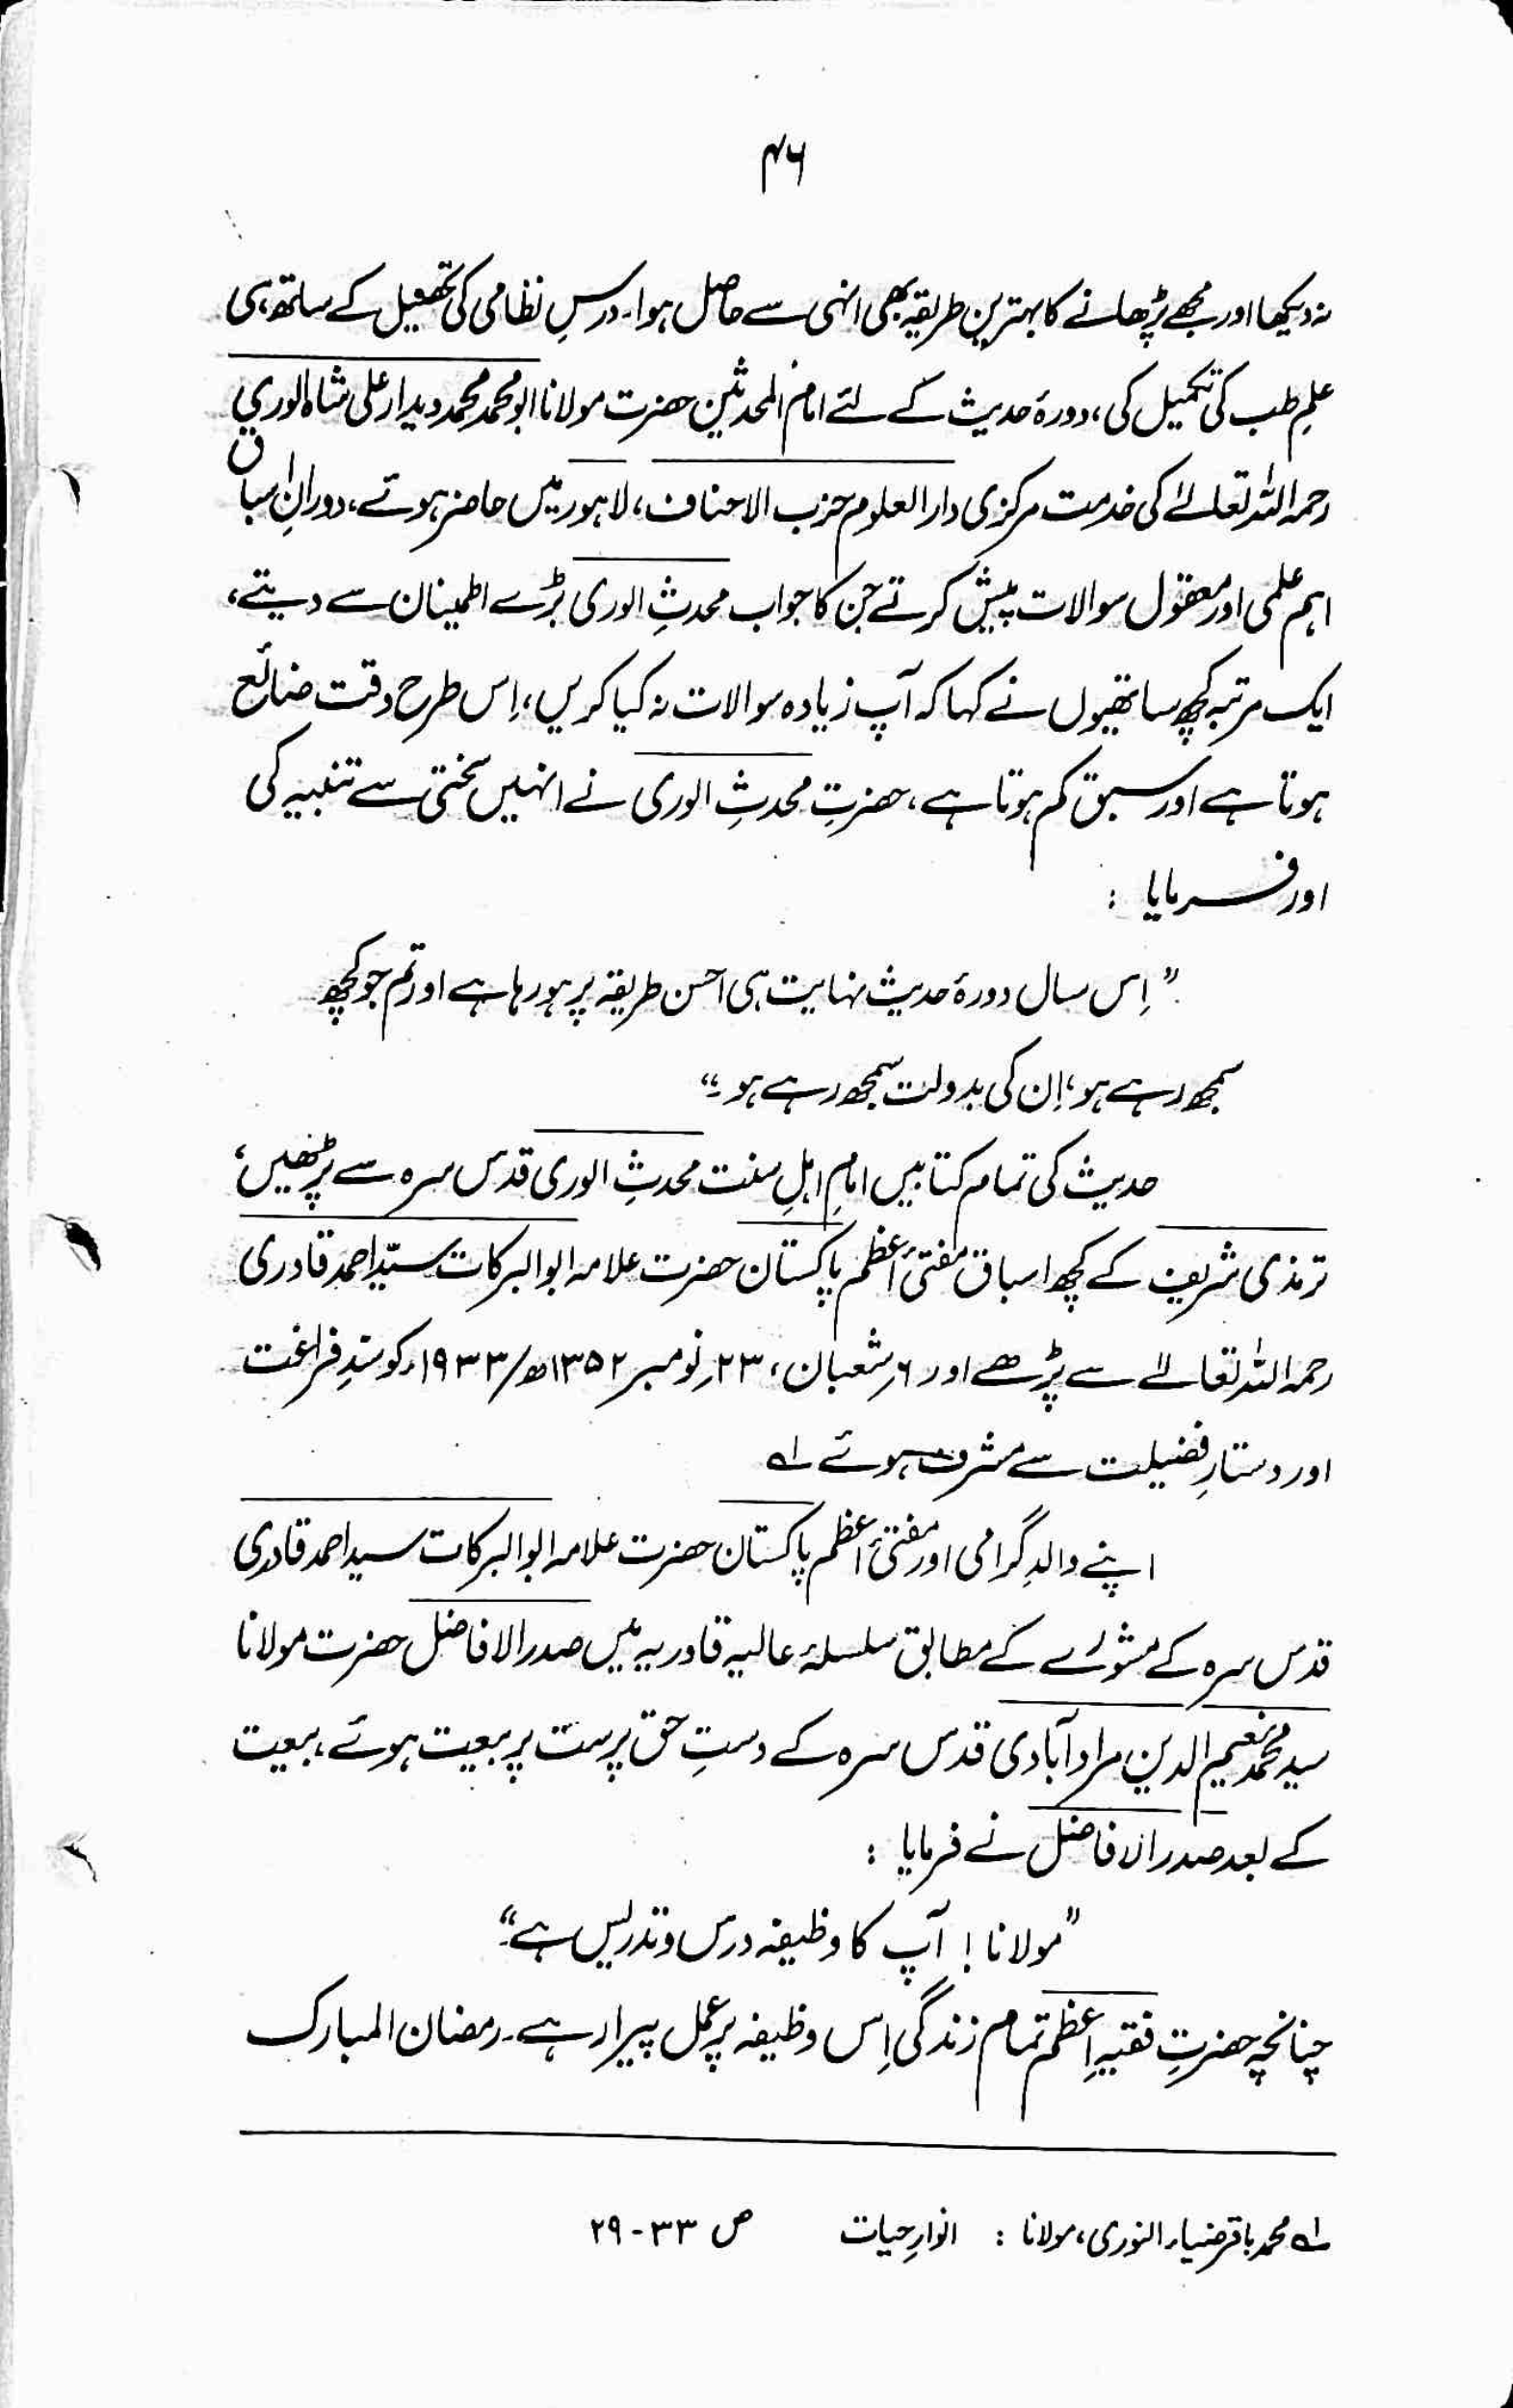 ۴۶
نہ دیکھا اور مجھے پڑھانے کا بہترین طریقہ بھی انہی سے حاصل ہوا۔ درسِ نظامی کی تحصیل کے ساتھ ہی
علمِ طب کی تکمیل کی، دورۂ حدیث کے لئے امام المحدثین حضرت مولانا ابو محمد محمد دیدار علی شاہ الوری
رحمہ اللہ تعالےٰ کی خدمت مرکزی دارالعلوم حزب الاحناف، لاہور میں حاضر ہوئے، دورانِ اسباق
اہم علمی اور معقول سوالات پیش کرتے جن کا جواب محدثِ الوری بڑے اطمینان سے دیتے،
ایک مرتبہ کچھ ساتھیوں نے کہا کہ آپ زیادہ سوالات نہ کیا کریں، اِس طرح وقت ضائع
ہوتا ہے اور سبق کم ہوتا ہے، حضرتِ محدثِ الوری نے انہیں سختی سے تنبیہ کی
اور فرمایا :
”اِس سال دورۂ حدیث نہایت ہی احسن طریقہ پر ہو رہا ہے اور تم جو کچھ
سمجھ رہے ہو، اِن کی بدولت سمجھ رہے ہو۔“
حدیث کی تمام کتابیں امامِ اہلِ سنت محدثِ الوری قدس سرہ سے پڑھیں،
ترمذی شریف کے کچھ اسباق مفتئ اعظم پاکستان حضرت علامہ ابوالبرکات سیّد احمد قادری
رحمہ اللہ تعالےٰ سے پڑھے اور ۶ر شعبان، ۲۳ر نومبر ۱۳۵۲ھ/۱۹۳۳ء کو سندِ فراغت
اور دستارِ فضیلت سے مشرف ہوئے لے
اپنے والدِ گرامی اور مفتئ اعظم پاکستان حضرت علامہ ابوالبرکات سید احمد قادری
قدس سرہ کے مشورے کے مطابق سلسلۂ عالیہ قادریہ میں صدرالافاضل حضرت مولانا
سید محمد نعیم الدین مراد آبادی قدس سرہ کے دستِ حق پرست پر بیعت ہوئے، بیعت
کے بعد صدرالافاضل نے فرمایا :
”مولانا ! آپ کا وظیفہ درس و تدریس ہے“۔
چنانچہ حضرتِ فقیہِ اعظم تمام زندگی اِس وظیفہ پر عمل پیرا رہے۔ رمضان المبارک
لے محمد باقر ضیاء النوری، مولانا : انوارِ حیات ص ۳۳-۲۹